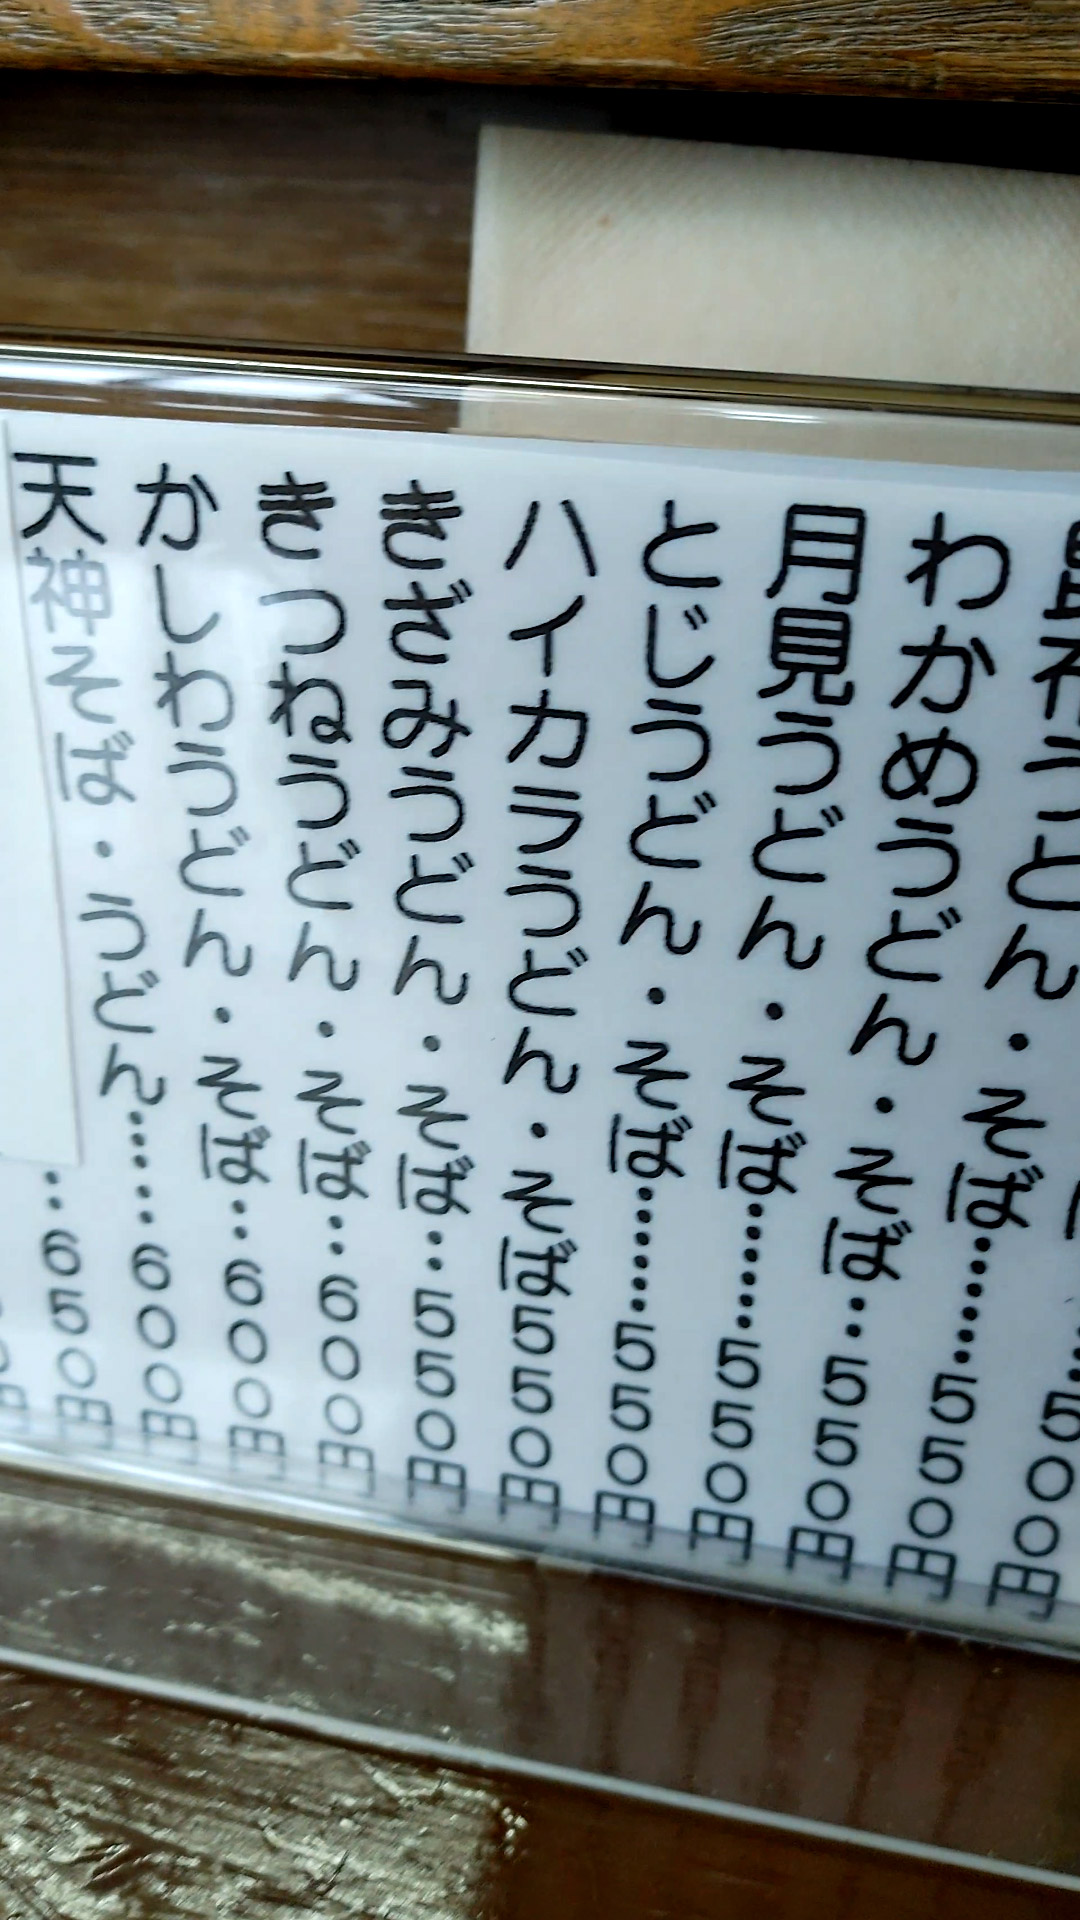 500円
うどん・そば……550円
わかめうどん・そば‥550円
月見うどん・そば……550円
とじうどん・そば……550円
ハイカラうどん・そば550円
きざみうどん・そば‥550円
きつねうどん・そば‥600円
かしわうどん・そば‥600円
天神そば・うどん……600円
…650円